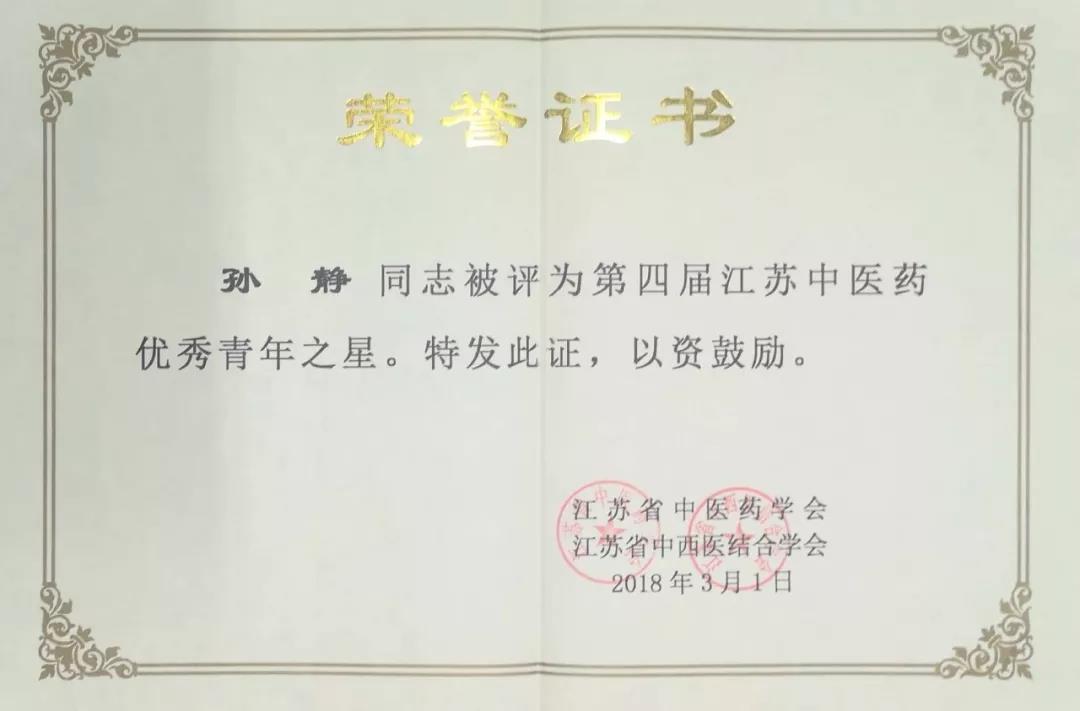 荣誉证书
孙 静 同志被评为第四届江苏中医药
优秀青年之星。特发此证，以资鼓励。
江苏省中医药学会
江苏省中西医结合学会
2018年3月1日